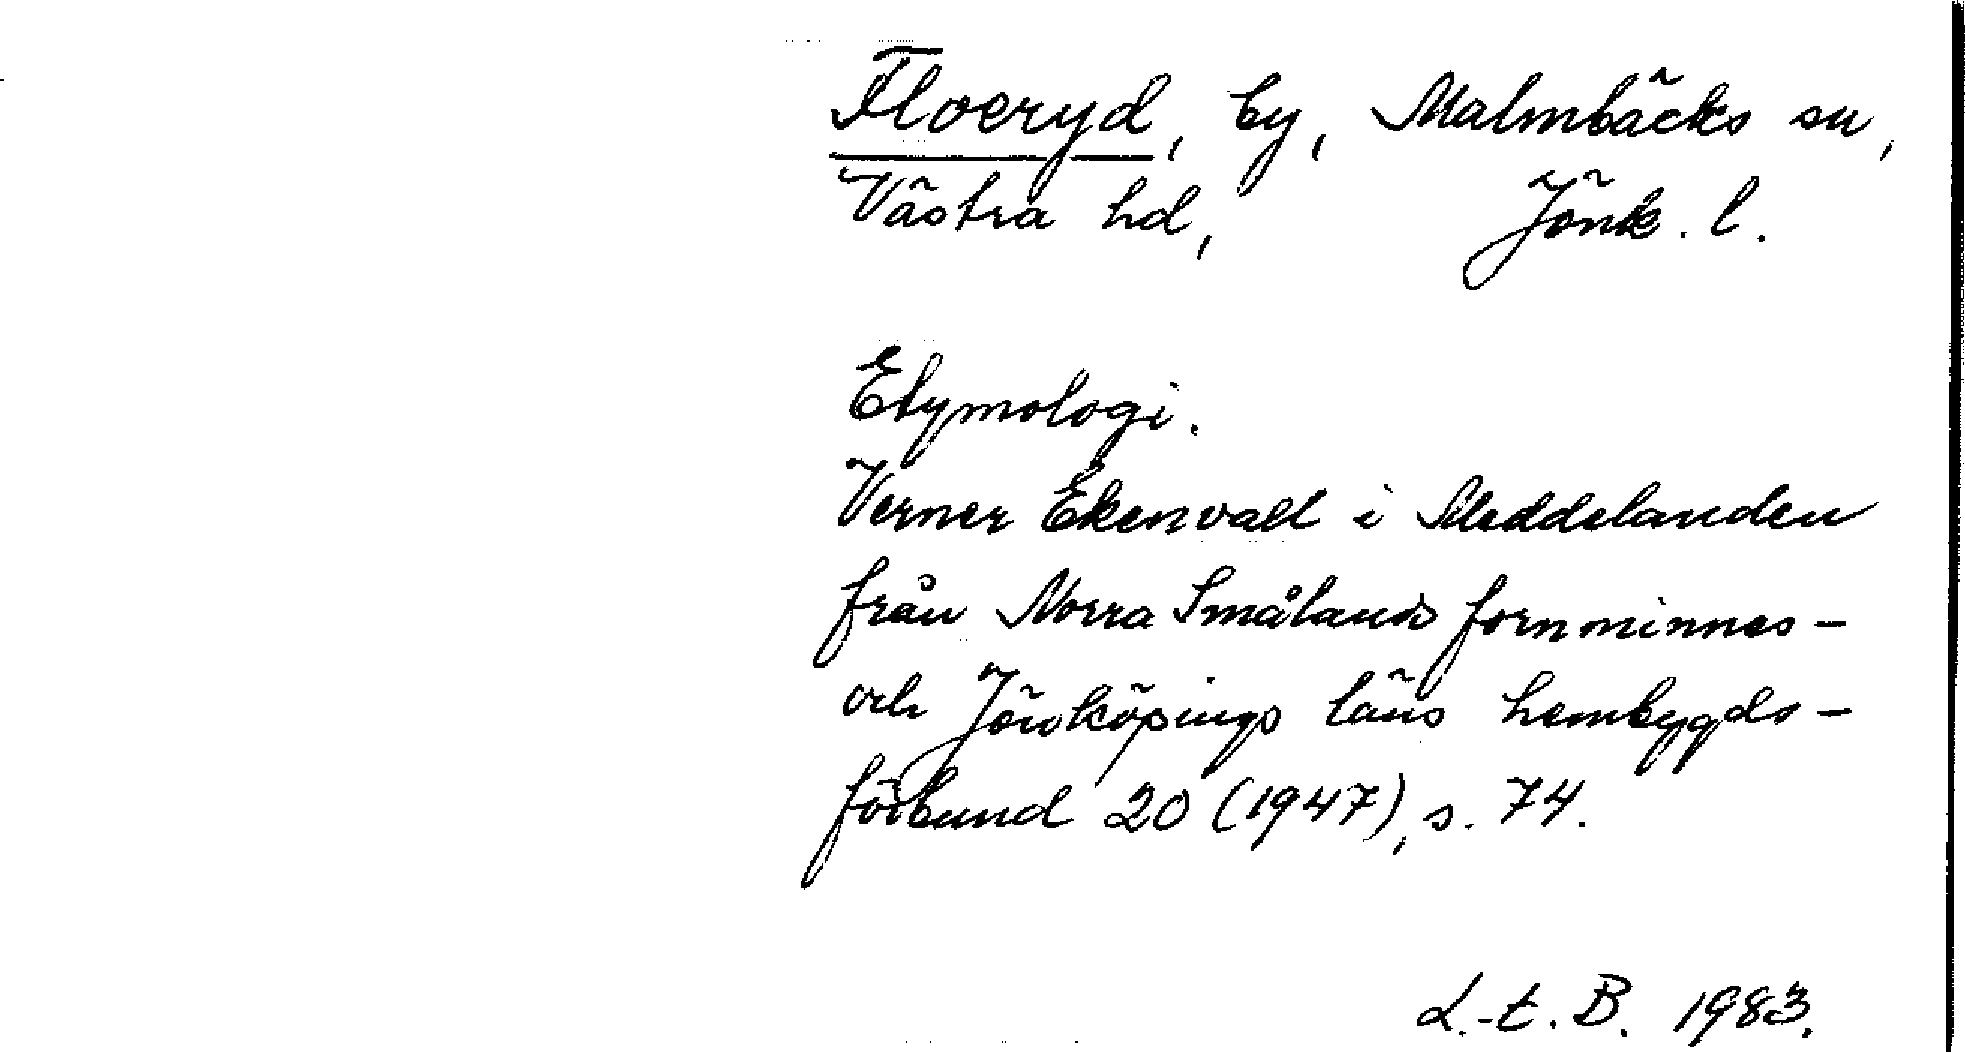 Floeryd, by, Malmbäcks sn,
Västra hd, Jönk. l.
Etymologi.
Verner Ekenvall i Meddelanden
från Norra Smålands fornminnes-
och Jönköpings läns hembygds-
förbund 20 (1947), s. 74.
L.-t. B. 1983.